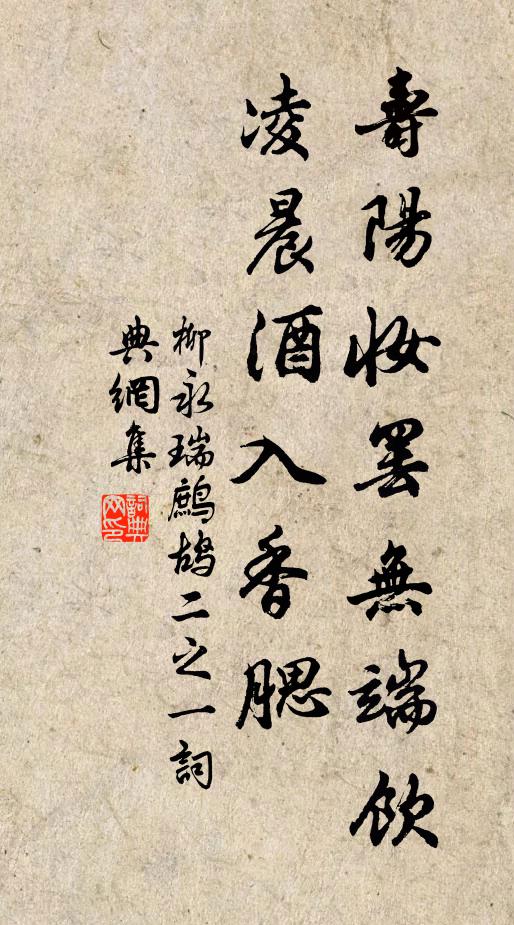 壽陽妝罷無端飲
凌晨酒入香腮
柳永瑞鷓鴣二之一詞
典網集
詞典
网印